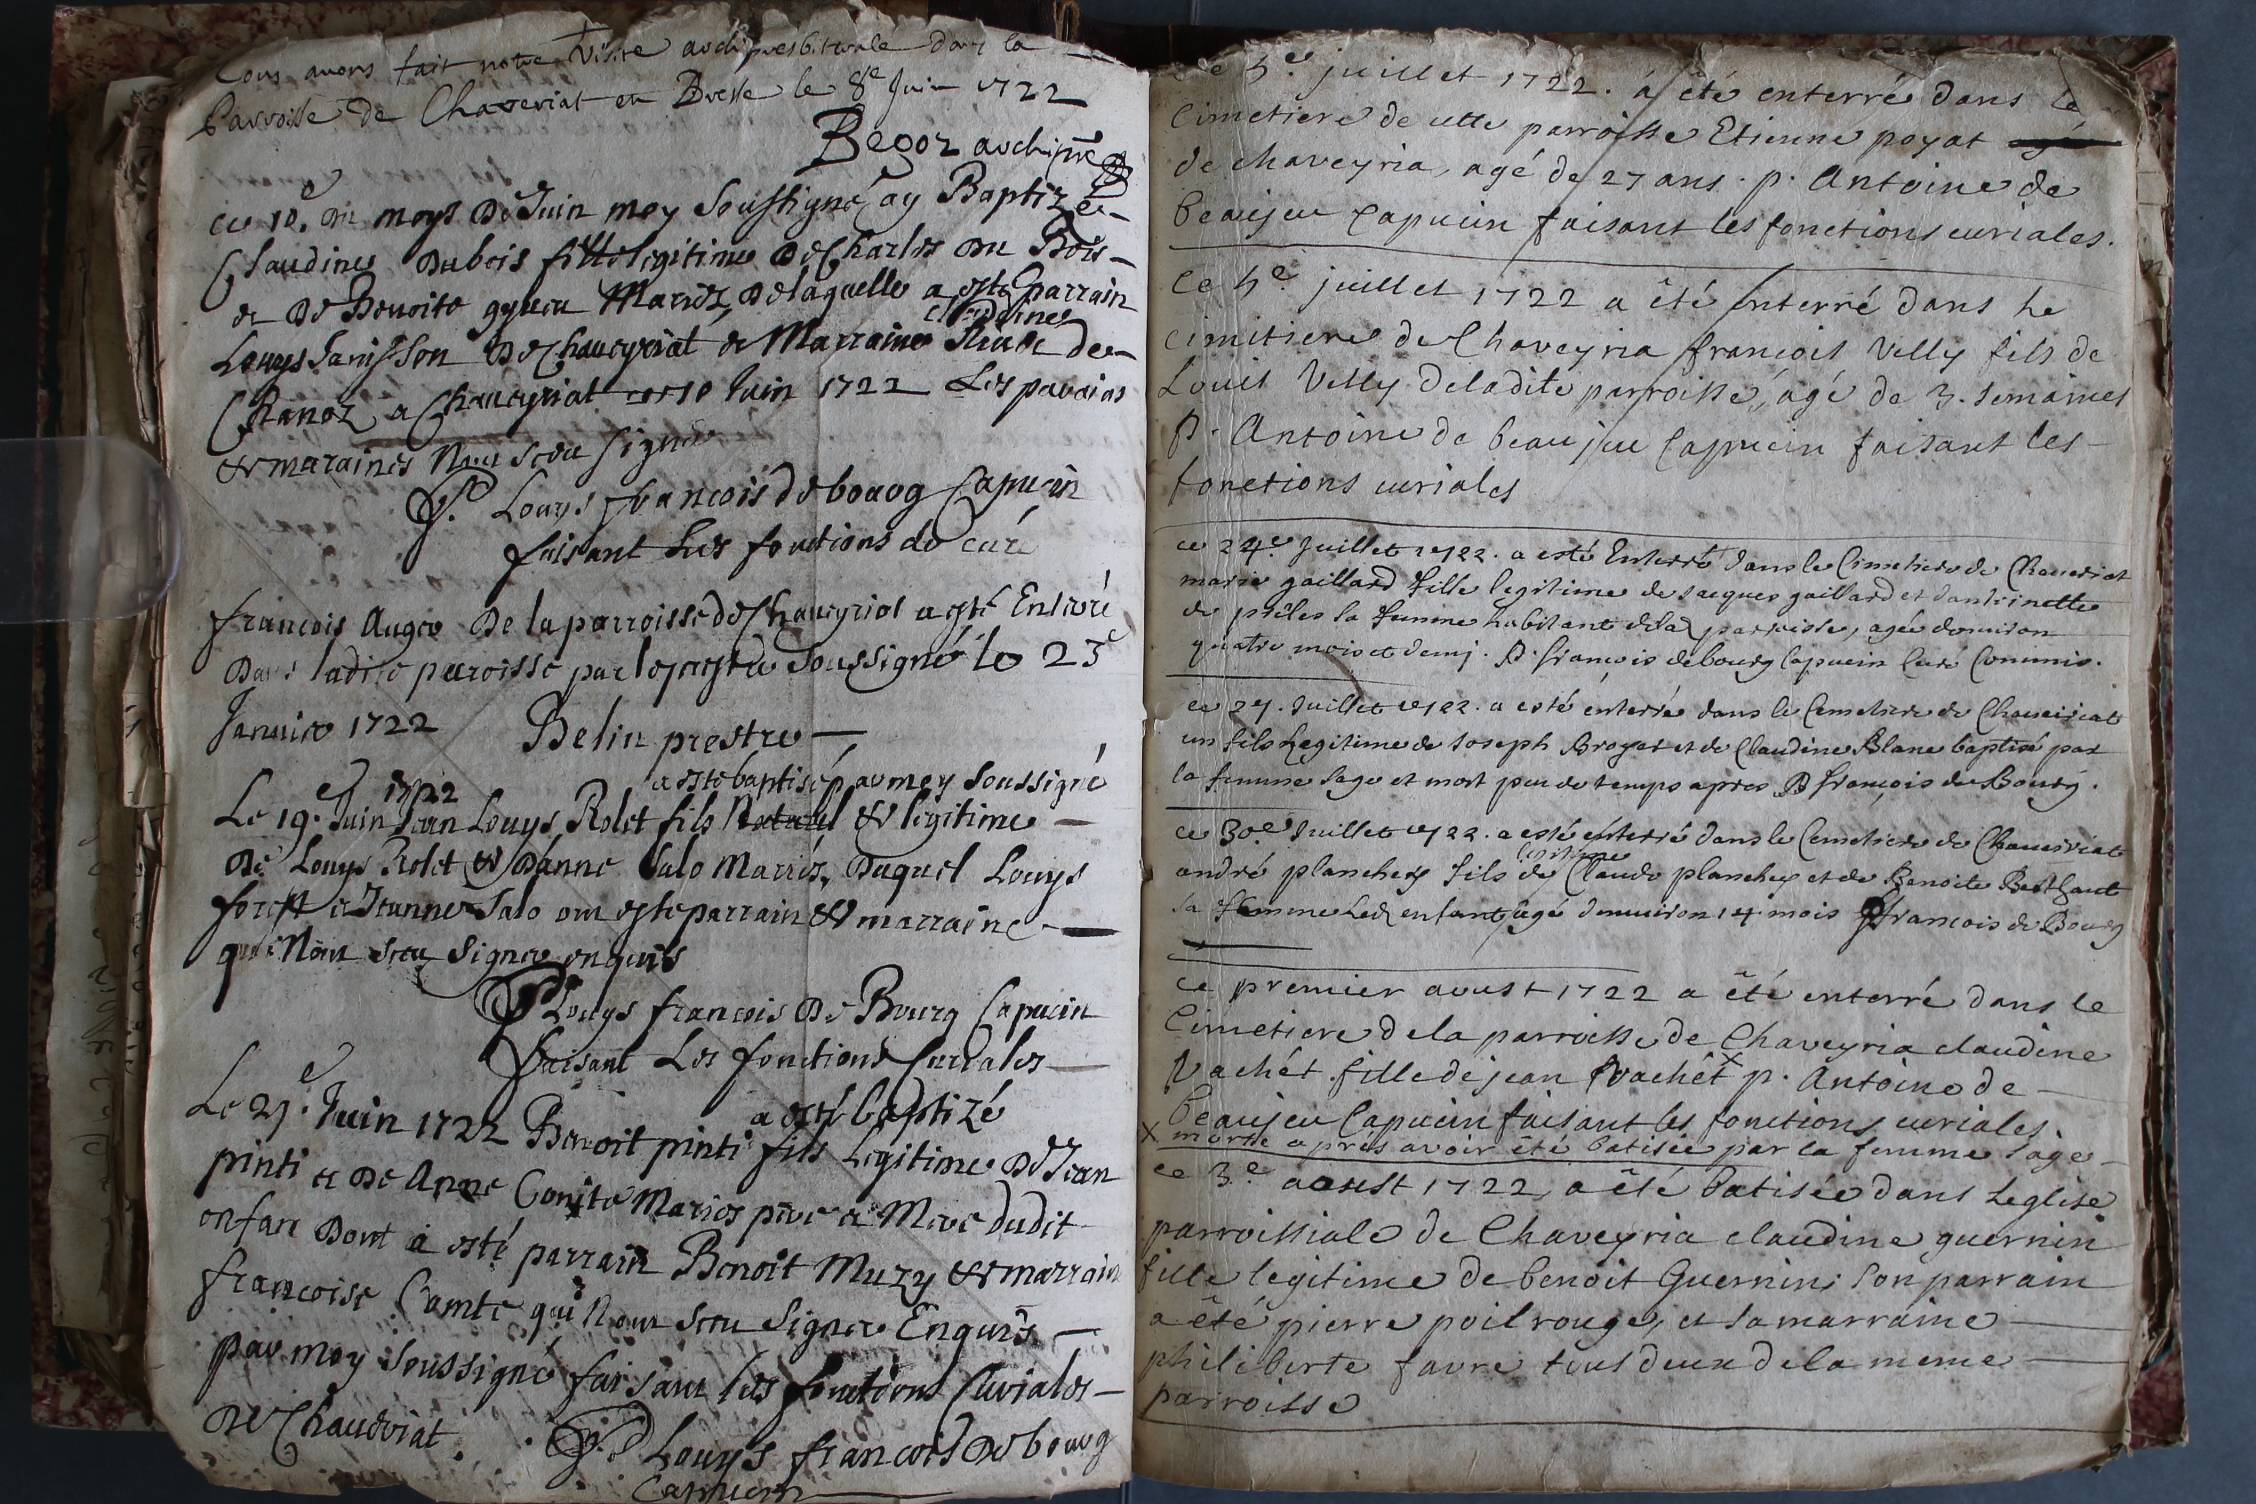 Nous avons fait notre Visite archipresbiterale dans la
Parroisse de Chaveriat en Bresse le 8e Juin 1722
Begoz archipre
ce 10e du moys de Juin moy soussigné ay Baptizé
Claudine Dubois fille legitime de Charles du Bois
et de Benoite Mariez, de laquelle a esté parrain
claudine
Louys Janisson de chaveyriat & Marraine de
Chanoz a Chaveyriat ce 10 Juin 1722 Les parains
& maraines N'ont sceu signer
P. Louys francois de bourg Capucin
faisant Les fonctions de curé
francois Auger De la parroisse de Chaveyriat a esté Enterré
Dans ladite paroisse par le prestre soussigné le 23e
Janvier 1722 Belin prestre
1722 a este baptisé par moy soussigné
Le 19e Juin Jean Louys Rolet fils Naturel & legitime
De Louys Rolet & D'anne Salo Mariés, Duquel Louys
forest et Jeanne Salo ont este parrain & marraine
qui N'ont sceu signer enquis
P Louys francois De Bourg Capucin
faisant Les fonctions Curiales
a esté baptizé
Le 27e Juin 1722 Benoit pinti fils Legitime De Jean
pinti et De Anne Comte Maries pere et Mere dudit
enfan Dont a esté parrain Benoit Muzy & marraine
francoise Comte qui N'ont sceu signer Enquis
par moy soussigné faisant les fonctions Curiales
De Chaveriat.
P. Louys francois De bourg
Capucin
Ce 5e juillet 1722. á êté enterré dans le
Cimetiere de cette parroisse Etienne poyat
de chaveyria, agé de 27 ans. p. Antoine de
beaujeu Capucin faisant les fonctions curiales.
Ce 5e juillet 1722 a êté enterré dans le
cimitiere de Chaveyria francois Velly fils de
Louis Velly de ladite parroisse, agé de 3. semaines
p. Antoine de beaujeu Capucin faisant les
fonctions curiales
ce 24e Juillet 1722. a esté Enterré dans le Cimetiere de Chaveriat
marie gaillard fille legitime de Jacques gaillard et d'antoinette
de préles sa femme habitant de lad parroisse, agée denviron
quatre mois et demj. P. francois de bourg Capucin Curé Commis.
ce 27. Juillet 1722. a esté enterré dans le Cemetiere de Chaveiriat
un fils Legitime de Joseph Broyer et de Claudine Blanc baptisé par
la femme sage et mort peu de temps apres P francois de Bourg.
ce 30e Juillet 1722. a esté enterré dans le Cemetiere de Chaveiriat
legitime
andré planchey fils de Claude planchey et de Benoite Berthaut
sa femme Led enfant agé denuiron 14 mois P francois de Bourg
ce premier aoust 1722 a êté enterré dans le
Cimetiere de la parroisse de Chaveyria claudine
Vachét fille de jean Vachét x p. Antoine de
beaujeu Capucin faisant les fonctions curiales.
x morte aprés avoir été batisée par la femme sage
ce 3e aoust 1722, a êté batisée dans Leglise
parroissiale de Chaveyria claudine guernin
fille legitime de benoit Guernin; son parrain
a êté pierre poilrouge, et sa marraine
philiberte favre tous deux de la meme
parroisse